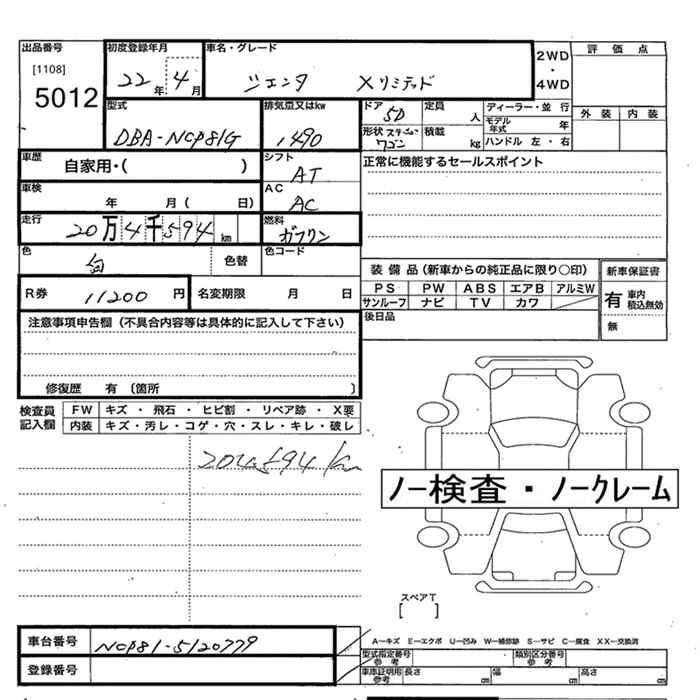 出品番号
[1108]
5012
初度登録年月
22年 4月
車名・グレード
シエンタ Xリミテッド
2WD
・
4WD
評価点
外装 内装
型式
DBA-NCP81G
排気量又はkw
1490
ドア
5D
定員
人
形状 ステーションワゴン
積載
kg
ディーラー・並行
モデル年式 年
ハンドル 左・右
車歴
自家用・( )
シフト
AT
正常に機能するセールスポイント
車検
年 月( 日)
AC
AC
走行
20万4千594km
燃料
ガソリン
色
白
色替
色コード
装備品(新車からの純正品に限り○印)
PS PW ABS エアB アルミW
サンルーフ ナビ TV カワ
新車保証書
有 車内積込無効
無
R券
11200円
名変期限 月 日
後日品
注意事項申告欄(不具合内容等は具体的に記入して下さい)
修復歴 有 〔箇所 〕
検査員記入欄
FW キズ・飛石・ヒビ割・リペア跡・X要
内装 キズ・汚レ・コゲ・穴・スレ・キレ・破レ
204594km
ノー検査・ノークレーム
スペアT
[ ]
車台番号
NCP81-5120779
登録番号
A―キズ E―エクボ U―凹み W―補修跡 S―サビ C―腐食 XX―交換済
型式指定番号
参考
類別区分番号
参考
車庫証明用
参考
長さ cm 幅 cm 高さ cm